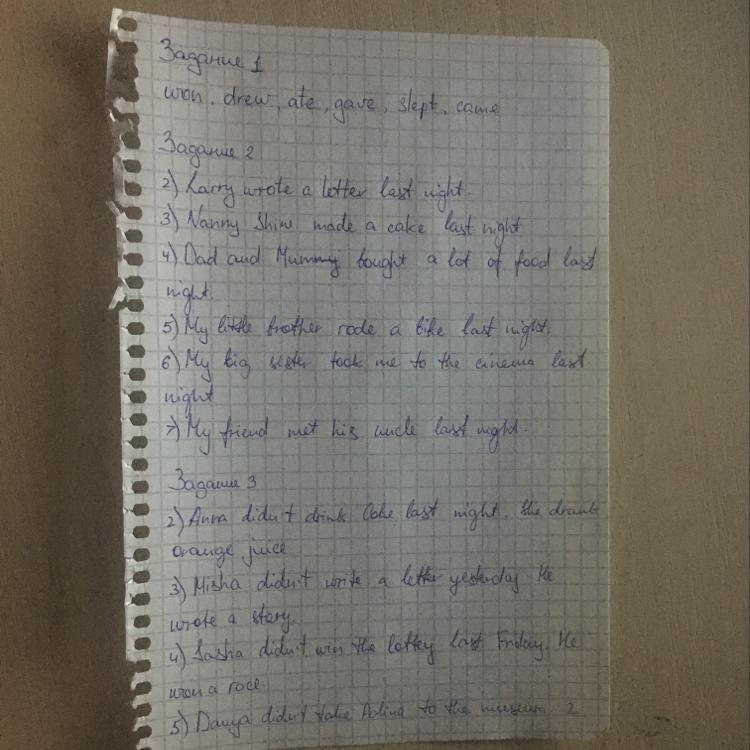 Задание 1
won, drew, ate, gave, slept, came
Задание 2
2) Larry wrote a letter last night.
3) Nanny Shine made a cake last night
4) Dad and Mummy bought a lot of food last
night.
5) My little brother rode a bike last night.
6) My big sister took me to the cinema last
night
7) My friend met his uncle last night.
Задание 3
2) Anna didn't drink Coke last night. She drank
orange juice
3) Misha didn't write a letter yesterday He
wrote a story.
4) Sasha didn't win the lottey last Friday. He
won a race.
5) didn't take to the museum.